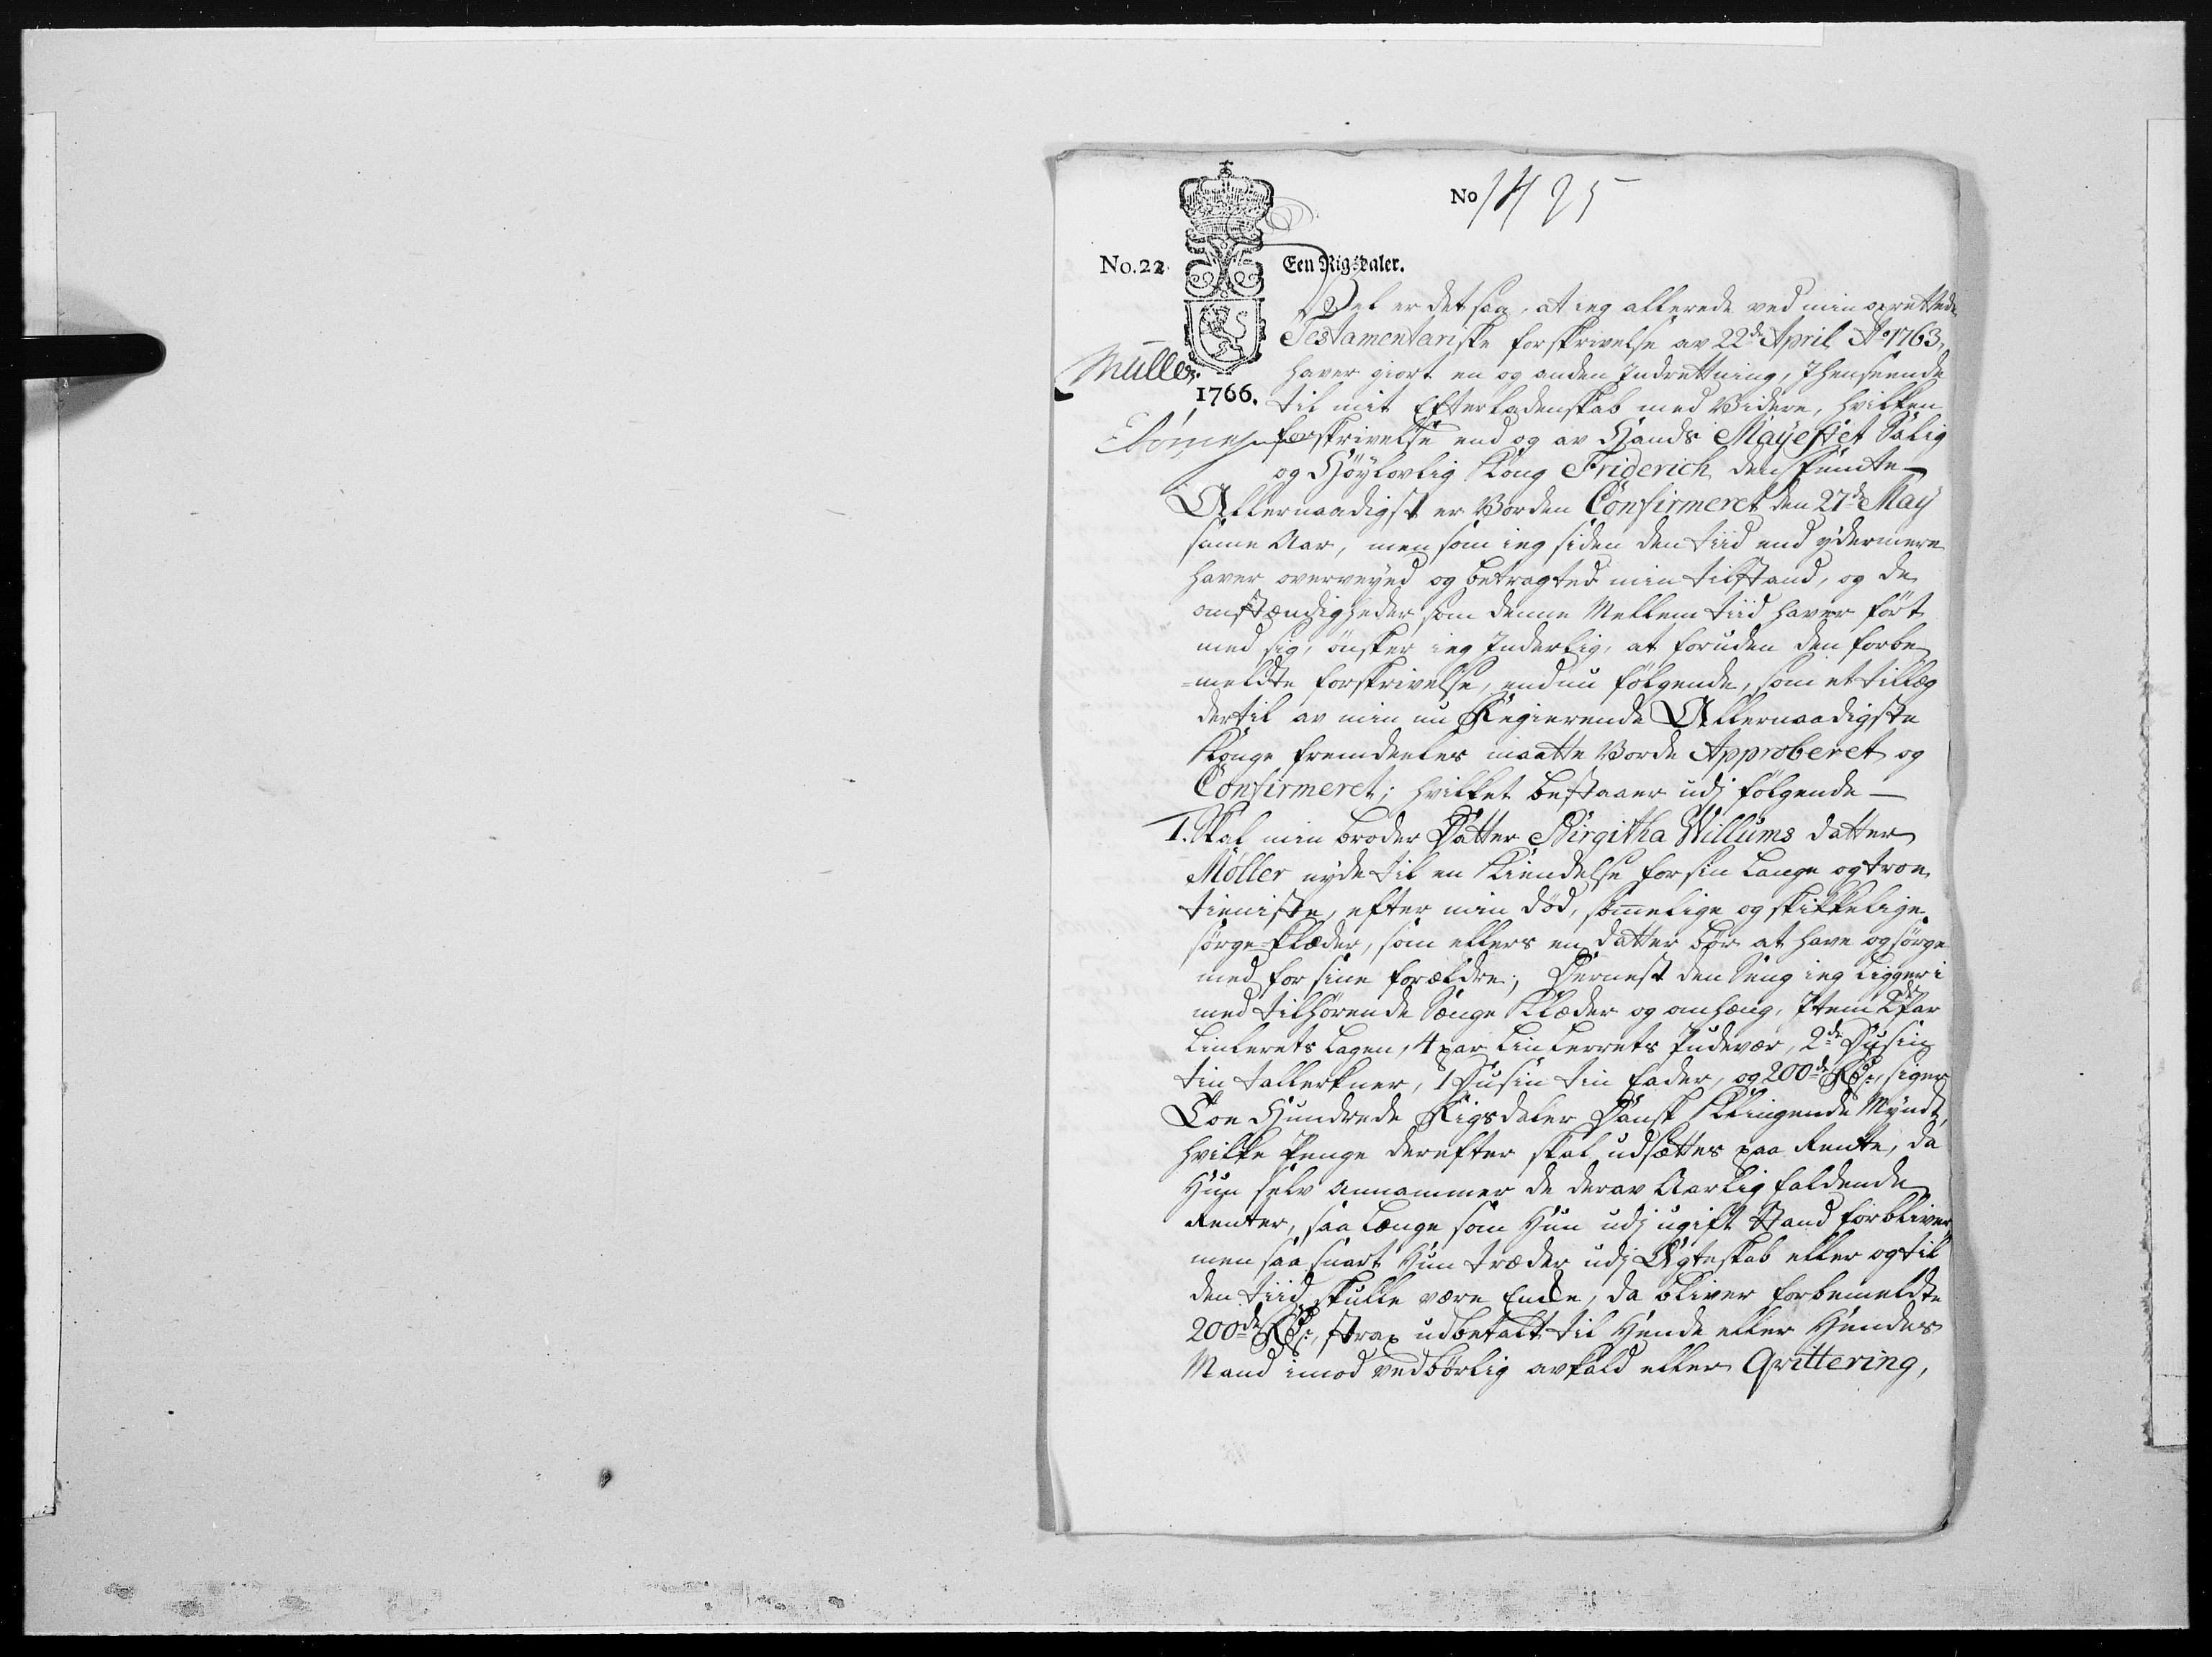 No 1425
No. 22.
Een Rigsdaler.
1766.
Müller.
Vel er det saa, at ieg allerede ved min oprettede
Testamentariske forskrivelse av 22de April Ao 1763,
haver giort en og anden Indrettning, I henseende
til mit Efterladenskab med Videre, hvilken
forskrivelse end og av Hands Mayestet Salig
og Høylovlig Kong Friderich den femte
Allernaadigst er Vorden Confirmeret den 27de May
samme Aar, men som ieg siden den tiid end ydermere
haver overveyed og betragted min tilstand, og de
omstændigheder som denne Mellem tiid haver ført
med sig, ønsker ieg Inderlig, at foruden den forbe
=meldte forskrivelse, endnu følgende, som et tillæg
dertil av min nu Regierende Allernaadigste
Konge fremdeeles maatte Vorde Approberet og
Confirmeret; hvilket bestaaer udj følgende
1. Skal min broder Datter Birgitha Willums datter
Møller nyde til en Kiendelse for sin lange og troe
tieniste, efter min død, sømmelige og skikkelige
sørge-klæder, som ellers en datter bør at have og sørge
med for sine forældre; Dernest den Seng ieg ligger i
med tilhørende Senge Klæder og omhæng, Item 2de par
Linlerets lagen, 4 par Linlerrets Pudevær, 2de Dusin
tin tallerkner, 1 Dusin tin fader, og 200de Rdr, siger
Toe Hundrede Rigsdaler Dansk Klingende Myndt,
hvilke Penge derefter skal udsættes paa Rente, da
Hun selv annammer de derav Aarlig faldende
Renter, saa længe som Hun udj ugift Stand forbliver,
men saa snart Hun træder udj Ægteskab eller og til
den tiid skulle være Encke, da bliver forbemeldte
200de Rdr, strax udbetalt til Hende eller Hendes
Mand imod vedbørlig avkald eller Qvittering,